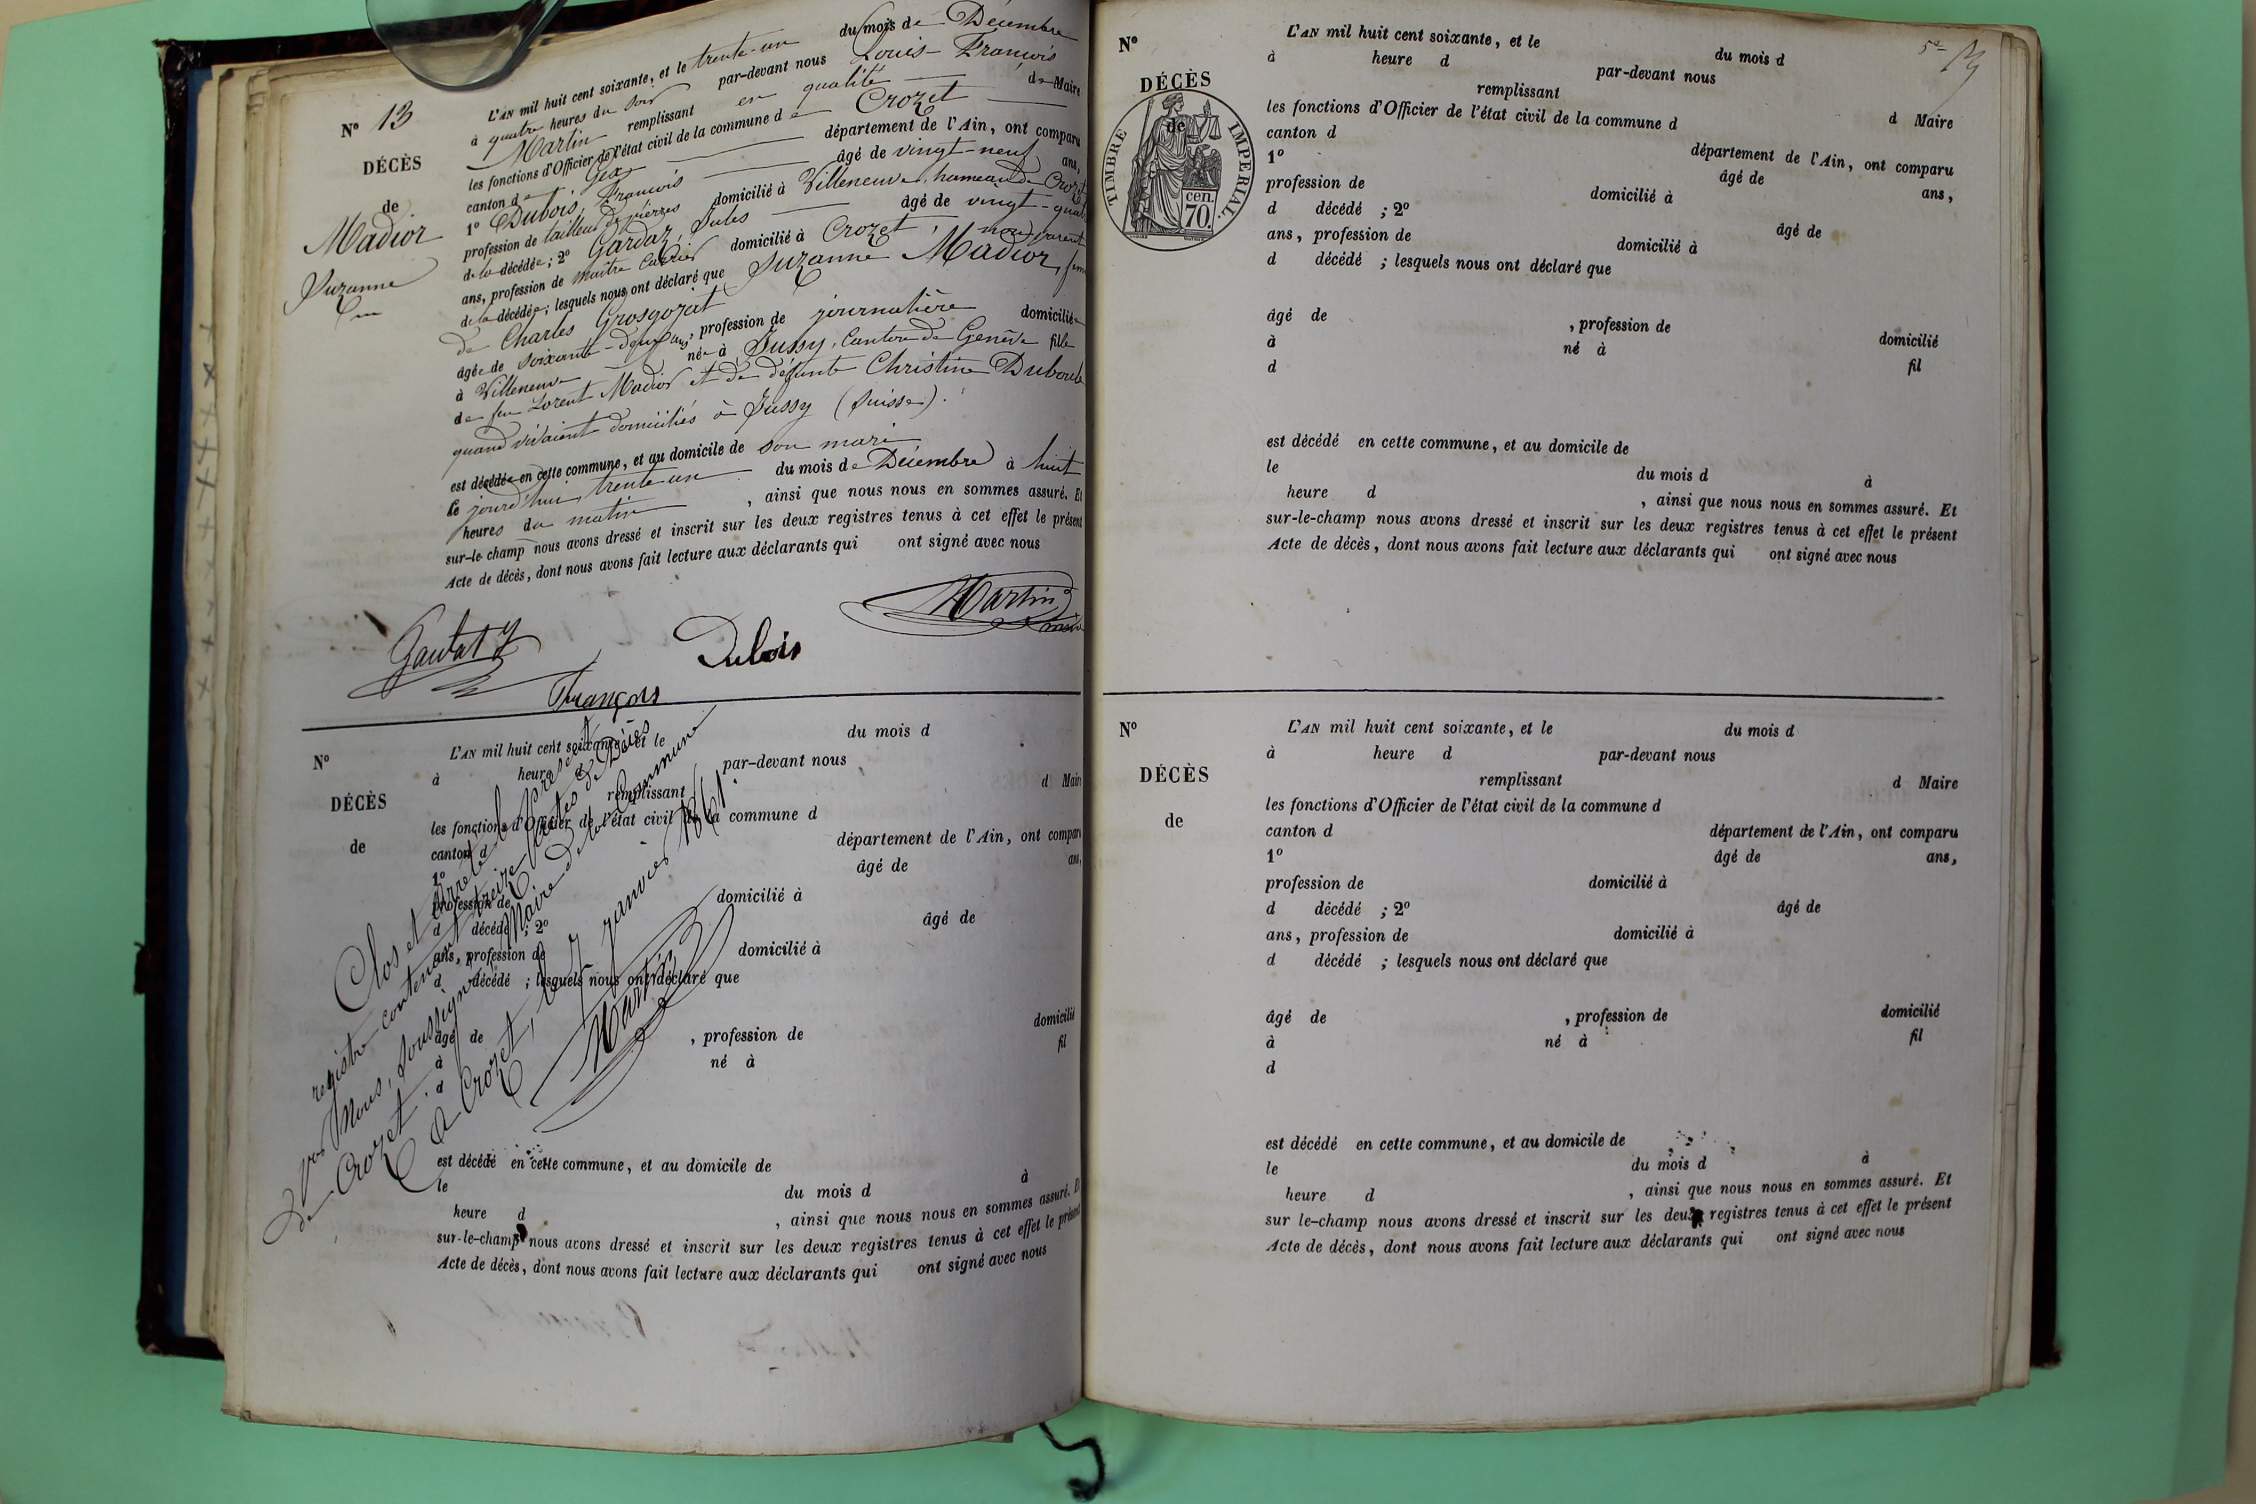 N° 13
DÉCÈS
de
Madior
Suzanne
L'AN mil huit cent soixante, et le trente-un du mois de Décembre
à quatre heures du soir par-devant nous Louis-François
Martin remplissant en qualité de Maire
les fonctions d'Officier de l'état civil de la commune de Crozet
canton de Gex département de l'Ain, ont comparu
1° Dubois, François âgé de vingt-neuf ans,
profession de tailleur de pierres domicilié à Villeneuve, hameau de Crozet
de la décédée ; 2° Gardaz, Jules âgé de vingt-quatre
ans, profession de maître carrier domicilié à Crozet, non parent
de la décédée ; lesquels nous ont déclaré que Suzanne Madior, femme
de Charles Grosgojat
âgée de soixante-deux ans, profession de journalière domiciliée
à Villeneuve née à Jussy, Canton de Genève fille
de feu Lorent Madior et de défunte Christine Duboule
quand vivaient domiciliés à Jussy (Suisse).
est décédée en cette commune, et au domicile de son mari
le jourd'hui trente-un du mois de Décembre à huit
heures du matin , ainsi que nous nous en sommes assuré. Et
sur-le-champ nous avons dressé et inscrit sur les deux registres tenus à cet effet le présent
Acte de décès, dont nous avons fait lecture aux déclarants qui ont signé avec nous
Martin
maire
Dubois
François
N°
DÉCÈS
de
L'AN mil huit cent soixante, et le du mois d
à heure d par-devant nous
remplissant d Maire
les fonctions d'Officier de l'état civil de la commune d
canton d département de l'Ain, ont comparu
1° âgé de ans,
profession de domicilié à
d décédé ; 2° âgé de
ans, profession de domicilié à
d décédé ; lesquels nous ont déclaré que
âgé de , profession de domicilié
à né à fil
d
est décédé en cette commune, et au domicile de
le du mois d à
heure d , ainsi que nous nous en sommes assuré. Et
sur-le-champ nous avons dressé et inscrit sur les deux registres tenus à cet effet le présent
Acte de décès, dont nous avons fait lecture aux déclarants qui ont signé avec nous
Clos et arrêté le présent
registre contenant treize actes de Décès
par Nous, soussigné, Maire de la Commune
de Crozet.
A Crozet, le 7 janvier 1861.
Martin
N°
DÉCÈS
de
TIMBRE IMPERIAL.
cen.
70.
L'AN mil huit cent soixante, et le du mois d
à heure d par-devant nous
remplissant d Maire
les fonctions d'Officier de l'état civil de la commune d
canton d département de l'Ain, ont comparu
1° âgé de ans,
profession de domicilié à
d décédé ; 2° âgé de
ans, profession de domicilié à
d décédé ; lesquels nous ont déclaré que
âgé de , profession de domicilié
à né à fil
d
est décédé en cette commune, et au domicile de
le du mois d à
heure d , ainsi que nous nous en sommes assuré. Et
sur-le-champ nous avons dressé et inscrit sur les deux registres tenus à cet effet le présent
Acte de décès, dont nous avons fait lecture aux déclarants qui ont signé avec nous
N°
DÉCÈS
de
L'AN mil huit cent soixante, et le du mois d
à heure d par-devant nous
remplissant d Maire
les fonctions d'Officier de l'état civil de la commune d
canton d département de l'Ain, ont comparu
1° âgé de ans,
profession de domicilié à
d décédé ; 2° âgé de
ans, profession de domicilié à
d décédé ; lesquels nous ont déclaré que
âgé de , profession de domicilié
à né à fil
d
est décédé en cette commune, et au domicile de
le du mois d à
heure d , ainsi que nous nous en sommes assuré. Et
sur le-champ nous avons dressé et inscrit sur les deux registres tenus à cet effet le présent
Acte de décès, dont nous avons fait lecture aux déclarants qui ont signé avec nous